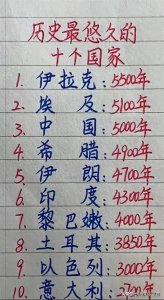 历史最悠久的
十个国家
1. 伊拉克：5500年
2. 埃及：5100年
3. 中国：5000年
4. 希腊：4900年
5. 伊朗：4700年
6. 印度：4300年
7. 黎巴嫩：4000年
8. 土耳其：3850年
9. 以色列：3000年
10. 意大利：2700年